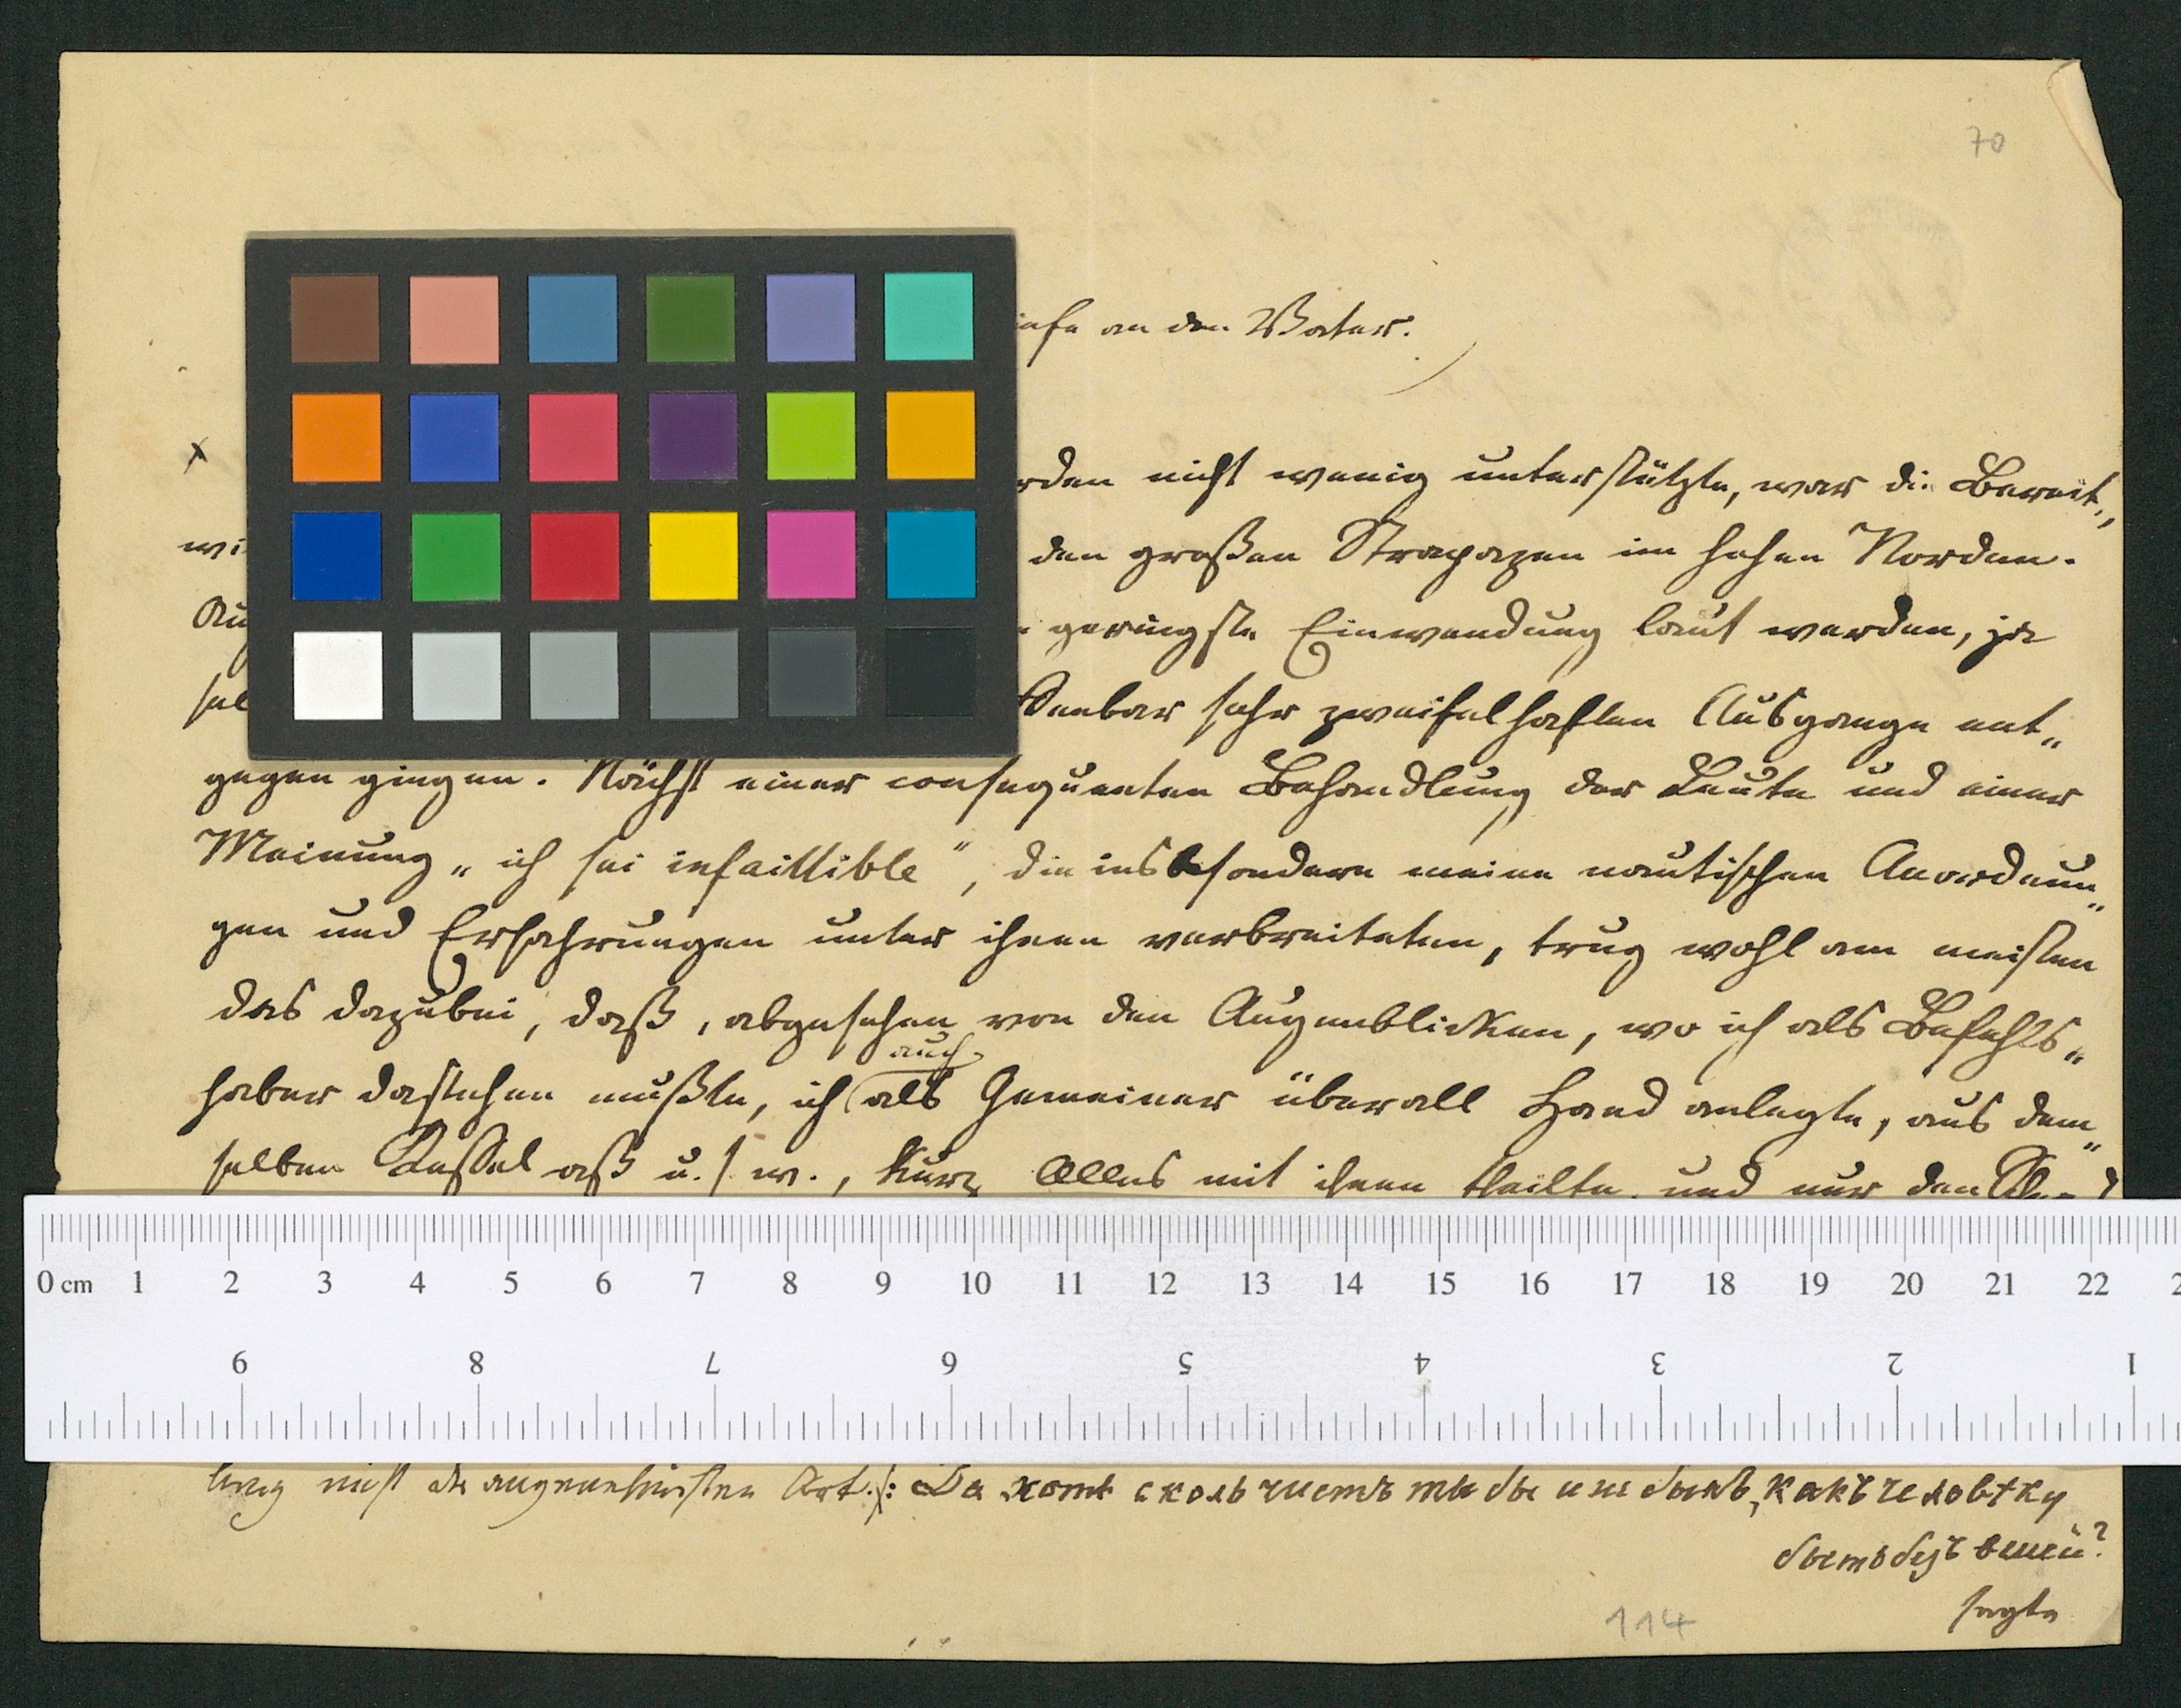 70
iefe an den Vater.
x
rden nicht wenig unterstützte, war die Bereit„
wi
den großen Strapazen im hohen Norden.
Au
geringste Einwendung laut werden, ja
sel
denbar sehr zweifelhaften Ausgange ent„
gegen gingen. Nächst einer consequenten Behandlung der Leute und einer
Meinung „ich sei infaillible", die insbesondere meine nautischen Anordnun„
gen und Erfahrungen unter ihnen verbreiteten, trug wohl am meisten
das dazu bei, daß, abgesehen von den Augenblicken, wo ich als Befehls„
auch
haber dastehen mußte, ich als Gemeiner überall Hand anlegte, aus dem„
selben Kessel aß u. s. w., kurz Alles mit ihnen theilte und nur den
0 cm 1 2 3 4 5 6 7 8 9 10 11 12 13 14 15 16 17 18 19 20 21 22 2
9 8 7 6 5 4 3 2 1
nicht der angenehmsten Art.: Да хоть сколь
какъ человѣку
быть безъ вшей?
114
sagte